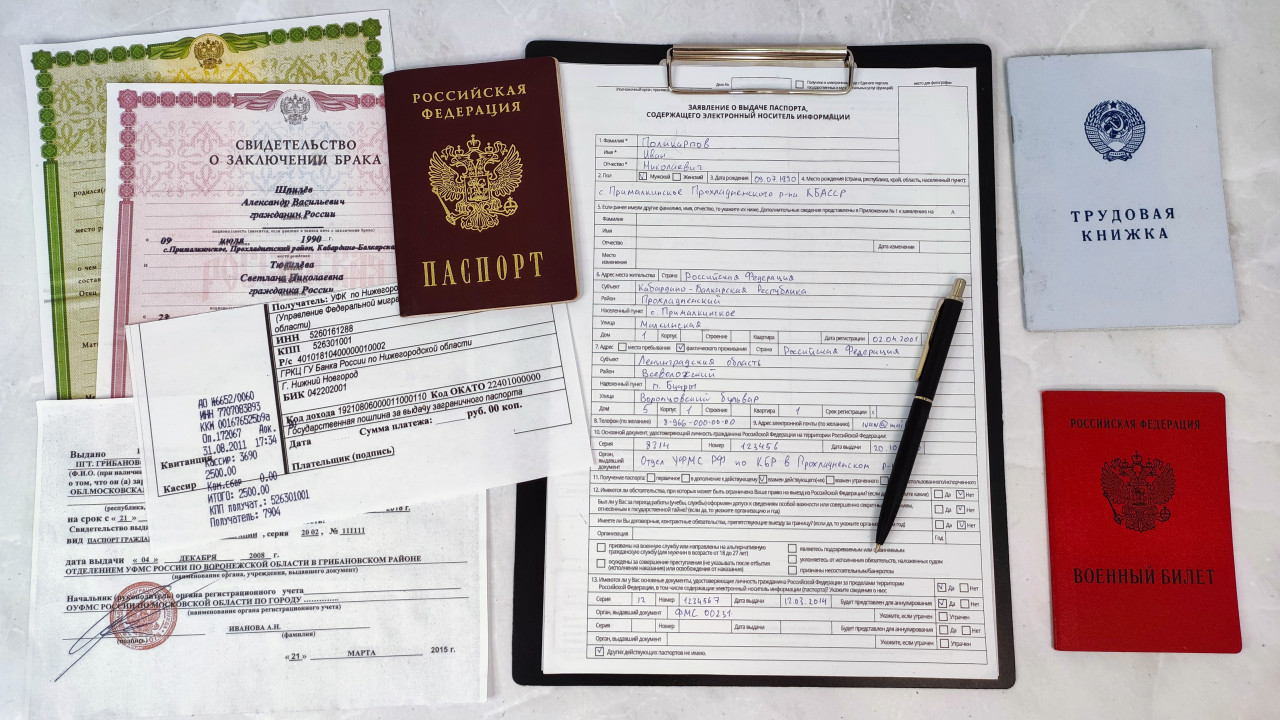 СВИДЕТЕЛЬСТВО
О ЗАКЛЮЧЕНИИ БРАКА
Шпилёв
Александр Васильевич
гражданин России
09 июля 1990 г.
с.Прималкинское, Прохладненский район, Кабардино-Балкарская
Светлана Николаевна
гражданка России
РОССИЙСКАЯ
ФЕДЕРАЦИЯ
ПАСПОРТ
Получатель: УФК по Нижегород
(Управление Федеральной миграц
области)
ИНН 5260161288
КПП 526301001
Р/с 40101810400000010002
ГРКЦ ГУ Банка России по Нижегородской области
Г. Нижний Новгород
БИК 042202001
Код дохода 19210806000011000110 Код ОКАТО 22401000000
Государственная пошлина за выдачу заграничного паспорта
Дата Сумма платежа: руб. 00 коп.
Плательщик (подпись)
АО №6652/0060
ИНН 7707083893
Оп.172067
31.08.2011 17:34
Квитанция
Кассир: 3690
2500.00
Кассир
ИТОГО: 2500.00
КПП получат.: 526301001
Получатель: 7904
Выдано
ПГТ. ГРИБАНОВ
(Ф.И.О. (при наличи
о том, что он (а) зар
ОБЛ.МОСКОВСКА
(республика,
на срок с « 21 »
Свидетельство выда
вид ПАСПОРТ ГРАЖДА
, серия 20 02 , № 111111
дата выдачи « 04 » ДЕКАБРЯ 2008 г.
ОТДЕЛЕНИЕМ УФМС РОССИИ ПО ВОРОНЕЖСКОЙ ОБЛАСТИ В ГРИБАНОВСКОМ РАЙОНЕ
(наименование органа, учреждения, выдавшего документ)
Начальник (руководитель) органа регистрационного учета
ОУФМС РОССИИ ПО МОСКОВСКОЙ ОБЛАСТИ ПО ГОРОДУ
(наименование органа регистрационного учета)
ИВАНОВА А.Н.
(подпись) (фамилия)
« 21 » МАРТА 2015 г.
ЗАЯВЛЕНИЕ О ВЫДАЧЕ ПАСПОРТА,
СОДЕРЖАЩЕГО ЭЛЕКТРОННЫЙ НОСИТЕЛЬ ИНФОРМАЦИИ
место для фотографии
1. Фамилия * Поликарпов
Имя * Иван
Отчество * Николаевич
2. Пол Мужской Женский 3. Дата рождения 09.07.1990 4. Место рождения (страна, республика, край, область, населенный пункт):
с. Прималкинское Прохладненского р-на КБАССР
5. Если ранее имели другие фамилию, имя, отчество, то укажите их ниже. Дополнительные сведения представлены в Приложении № 1 к заявлению на л
Фамилия
Имя
Отчество Дата изменения
Место
изменения
6. Адрес места жительства Страна Российская Федерация
Субъект Кабардино-Балкарская Республика
Район Прохладненский
Населенный пункт с. Прималкинское
Улица
Дом 1 Корпус Строение Квартира Дата регистрации 02.04.2001
7. Адрес места пребывания фактического проживания Страна Российская Федерация
Субъект Ленинградская область
Район Всеволожский
Населенный пункт п. Бугры
Улица Воронцовский бульвар
Дом 5 Корпус 1 Строение Квартира 1 Срок регистрации с
8. Телефон (по желанию) 8-966-000-00-00 9. Адрес электронной почты (по желанию) ivan@mail
10. Основной документ, удостоверяющий личность гражданина Российской Федерации на территории Российской Федерации:
Серия 8314 Номер 123456 Дата выдачи 20.10
Орган,
выдавший
документ Отдел УФМС РФ по КБР в Прохладненском р-н
11. Получение паспорта первичное в дополнение к действующему взамен действующего(их) взамен утраченного использованного/испорченного
12. Имеются ли обязательства, при которых может быть ограничено Ваше право на выезд из Российской Федерации? (если да, укажите какие) Да Нет
Был ли у Вас за период работы (учебы, службы) оформлен допуск к сведениям особой важности или совершенно секретным
отнесенным к государственной тайне? (если да, то укажите организацию и год) Да Нет
Имеете ли Вы договорные, контрактные обязательства, препятствующие выезду за границу? (если да, то укажите организацию и год) Да Нет
Организация Год
призваны на военную службу или направлены на альтернативную
гражданскую службу (для мужчин в возрасте от 18 до 27 лет)
являетесь подозреваемым или обвиняемым
осуждены за совершение преступления (не указывать после отбытия
(исполнения наказания) или освобождения от наказания)
уклоняетесь от исполнения обязательств, наложенных судом
признаны несостоятельным/банкротом
13. Имеются ли у Вас основные документы, удостоверяющие личность гражданина Российской Федерации за пределами территории
Российской Федерации, в том числе содержащие электронные носители информации (паспорта)? Укажите сведения о них: Да Нет
Серия 12 Номер 1234567 Дата выдачи 12.03.2014 Будет представлен для аннулирования Да Нет
Орган, выдавший документ ФМС 00231 Укажите, если утрачен Утрачен
Серия Номер Дата выдачи Будет представлен для аннулирования Да Нет
Орган, выдавший документ Укажите, если утрачен Утрачен
Других действующих паспортов не имею.
ТРУДОВАЯ
КНИЖКА
РОССИЙСКАЯ ФЕДЕРАЦИЯ
ВОЕННЫЙ БИЛЕТ